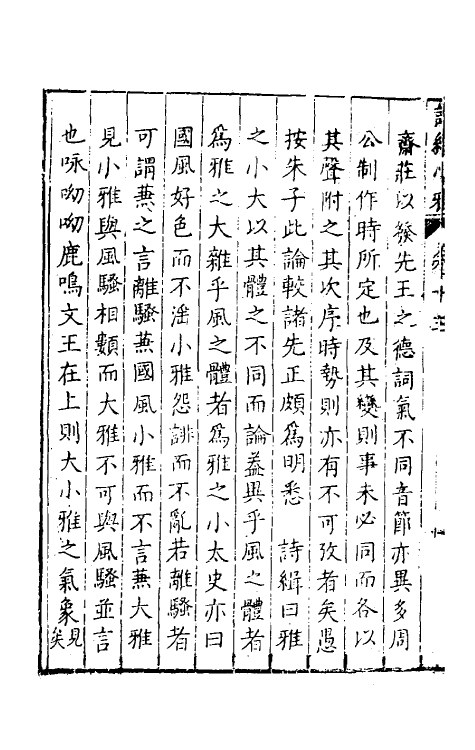 詩經小雅 卷十三
齋莊以發先王之德詞氣不同音節亦異多周
公制作時所定也及其變則事未必同而各以
其聲附之其次序時勢則亦有不可攷者矣愚
按朱子此論較諸先正頗為明悉 詩緝曰雅
之小大以其體之不同而論蓋異乎風之體者
為雅之大雜乎風之體者為雅之小太史亦曰
國風好色而不滛小雅怨誹而不亂若離騷者
可謂蒹之言離騷蒹國風小雅而不言蒹大雅
見小雅與風騷相類而大雅不可與風騷並言
也咏呦呦鹿鳴文王在上則大小雅之氣象見矣